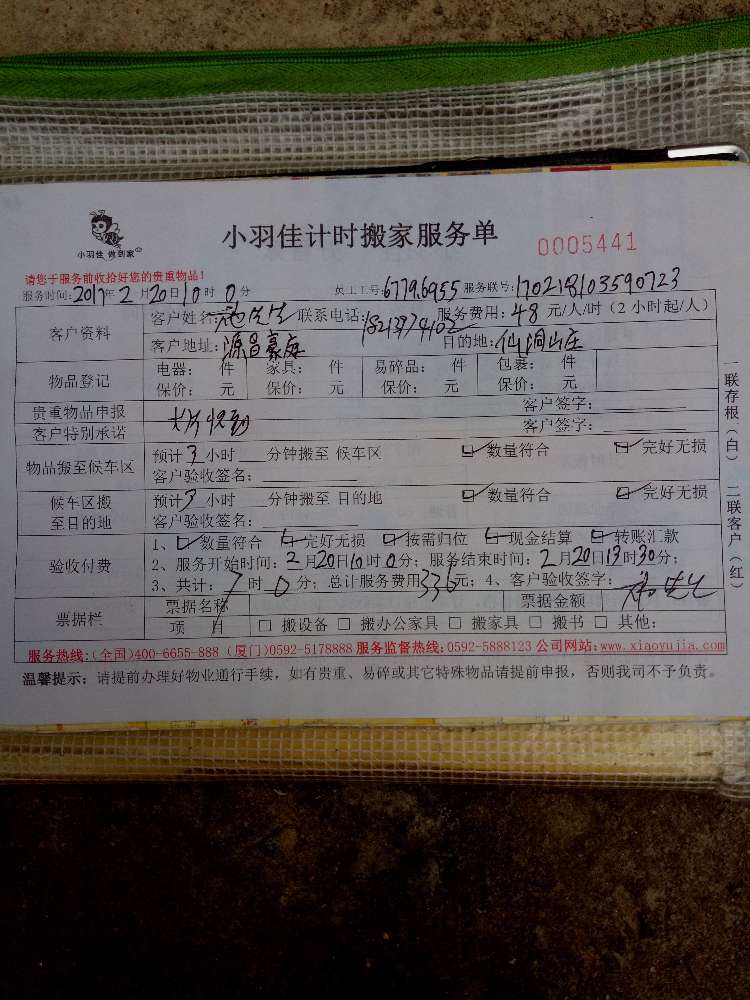 小羽佳 做到家
小羽佳计时搬家服务单
0005441
请您于服务前收拾好您的贵重物品！
服务时间:2017年2月20日10时0分 员工工号:6779.6955 服务联号:170218103590723
客户资料 客户姓名: 联系电话: 服务费用:48元/人/时(2小时起/人)
客户地址:源昌豪庭 目的地:仙洞山庄
物品登记 电器: 件 家具: 件 易碎品: 件 包裹: 件
保价: 元 保价: 元 保价: 元 保价: 元
贵重物品申报 客户签字:
客户特别承诺 客户签字:
物品搬至候车区 预计3小时 分钟搬至 候车区 ☑数量符合 ☑完好无损
客户验收签名:
候车区搬至目的地 预计3小时 分钟搬至 目的地 ☑数量符合 ☑完好无损
客户验收签名:
验收付费 1、☑数量符合 ☑完好无损 ☑按需归位 ☑现金结算 ☑转账汇款
2、服务开始时间:2月20日10时0分; 服务结束时间:2月20日13时30分;
3、共计:7时0分; 总计服务费用336元; 4、客户验收签字:
票据栏 票据名称 票据金额
项 目 □ 搬设备 □ 搬办公家具 □ 搬家具 □ 搬书 □ 其他:
一联存根(白) 二联客户(红)
服务热线:(全国)400-6655-888 (厦门)0592-5178888 服务监督热线:0592-5888123 公司网站:www.xiaoyujia.com
温馨提示: 请提前办理好物业通行手续，如有贵重、易碎或其它特殊物品请提前申报，否则我司不予负责。